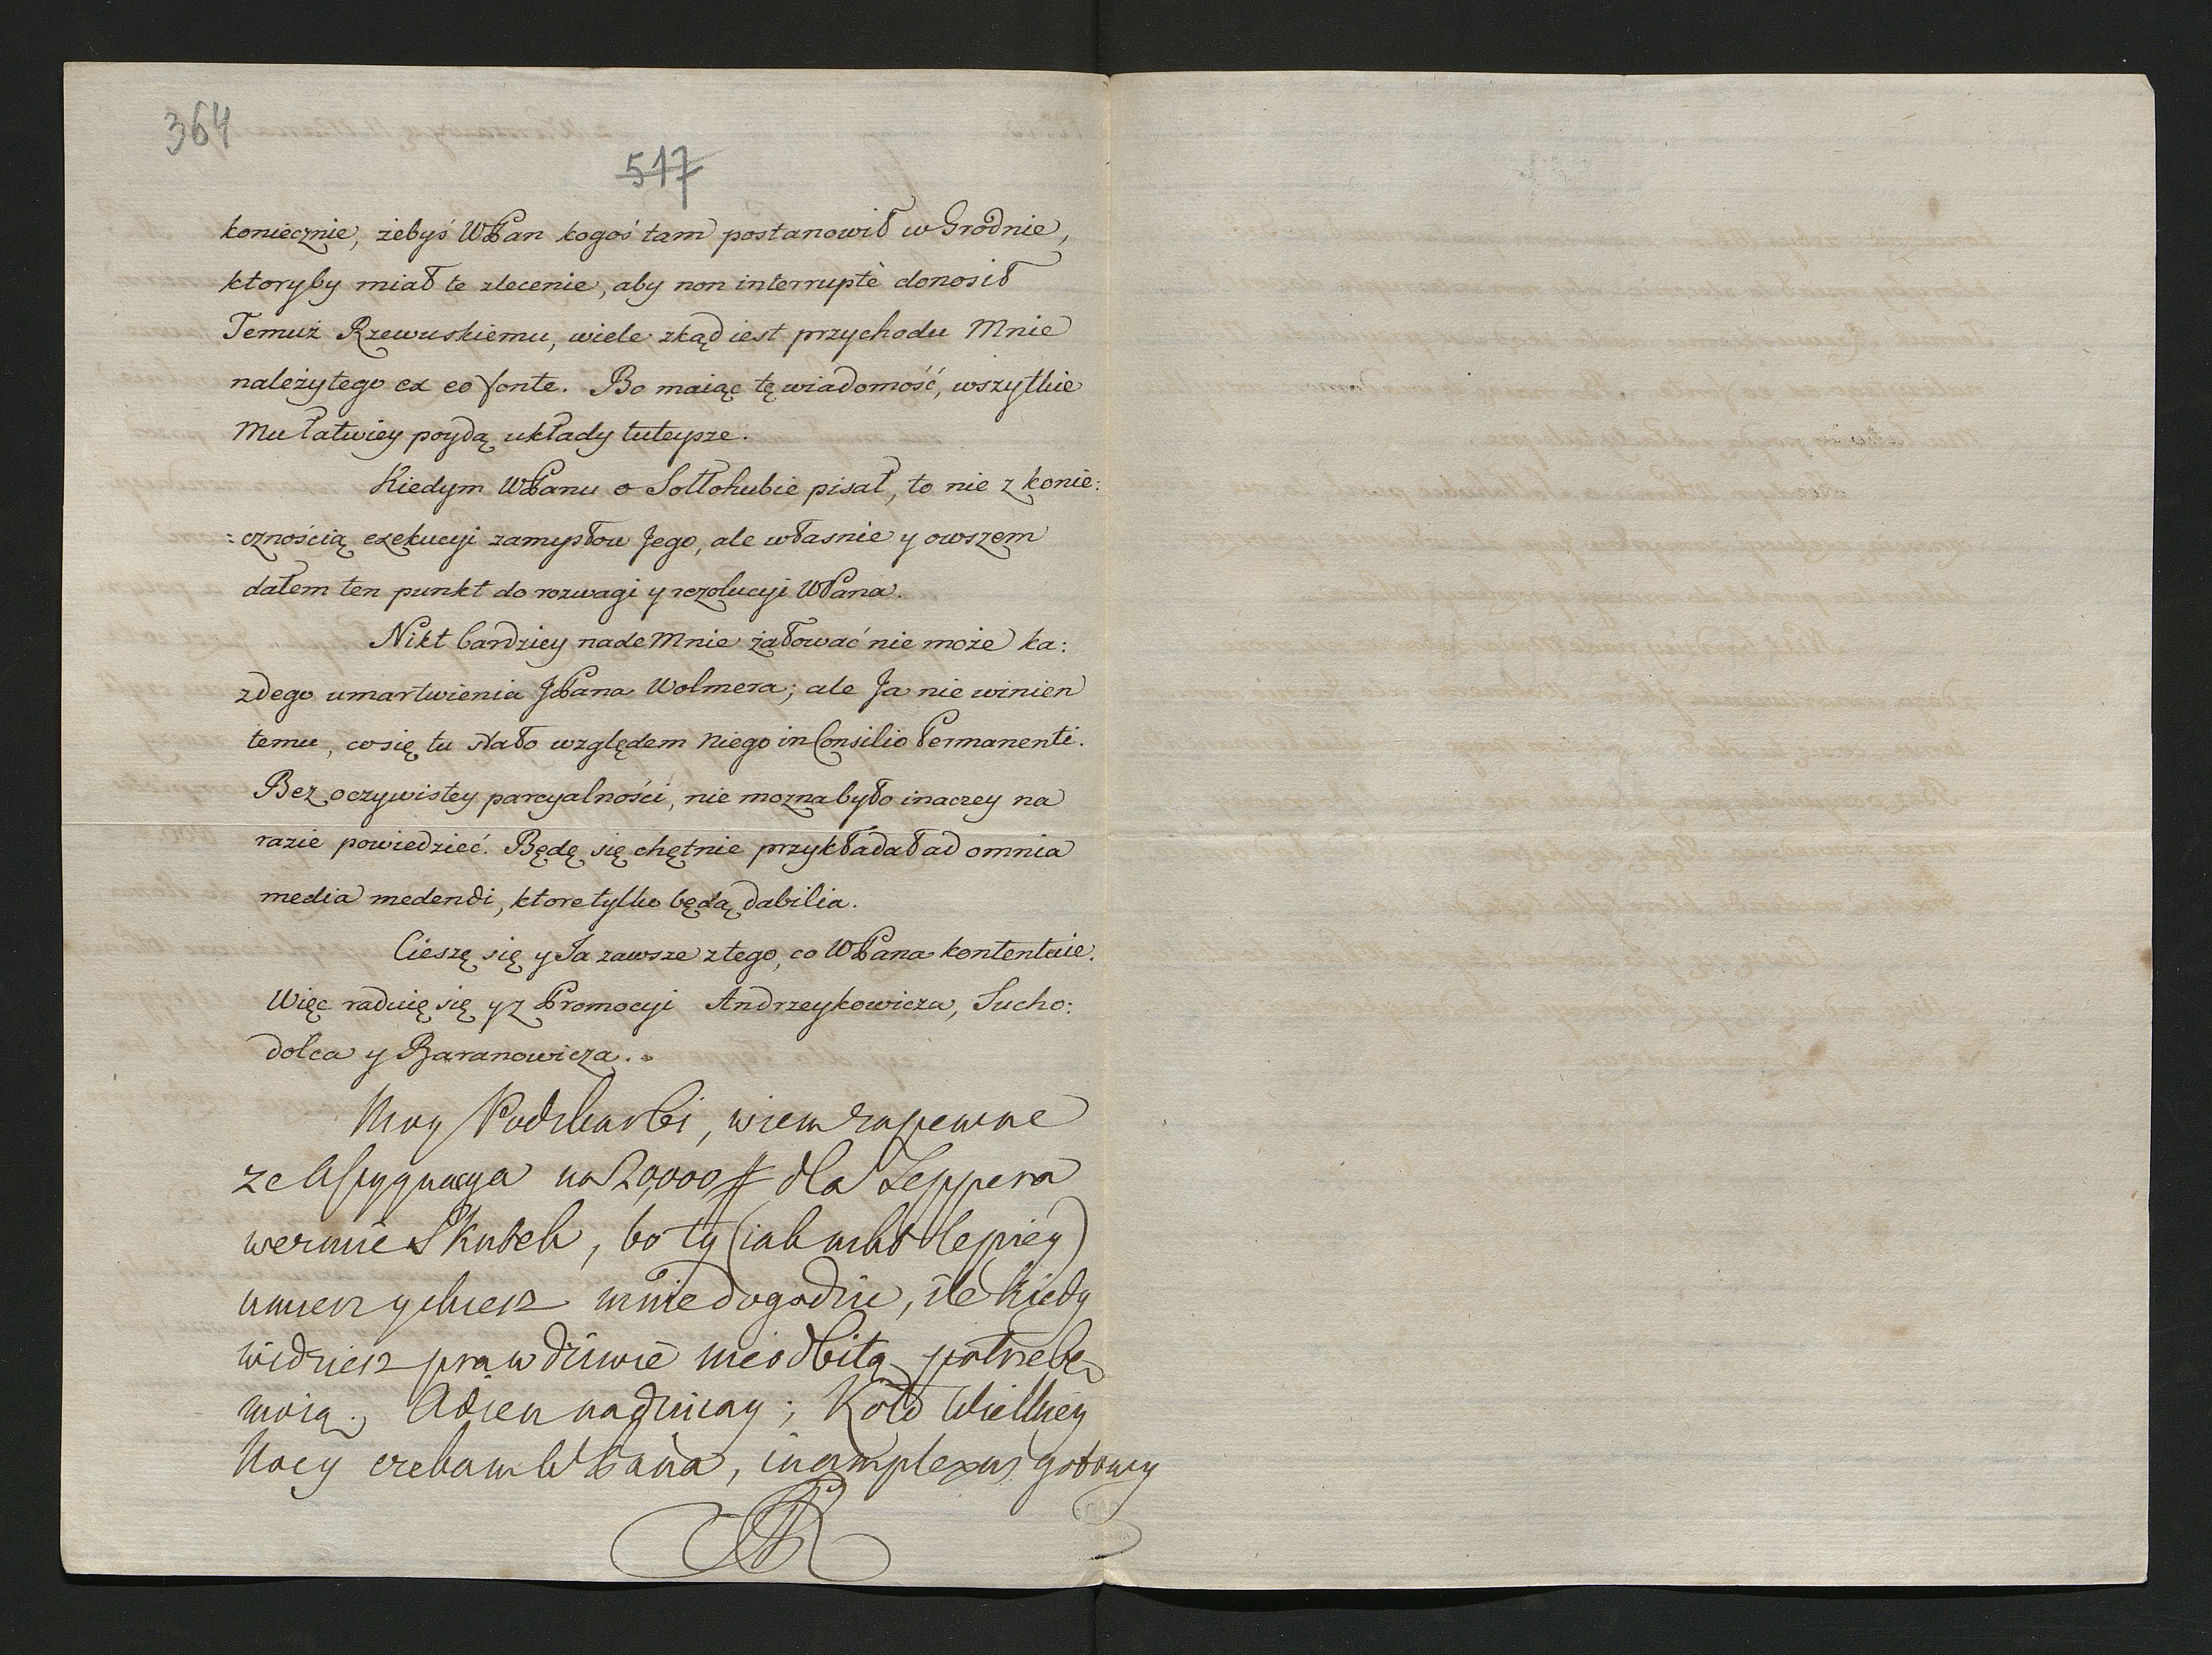 364
517
koniecznie, żebyś WPan kogoś tam postanowił w Grodnie,
ktoryby miał te zlecenie, aby non interruptè donosił
Temuż Rzewuskiemu, wiele zkąd iest przychodu Mnie
należytego ex eo fonte. Bo maiąc tę wiadomość, wszytkie
Mu łatwiey poydą układy tuteysze.
Kiedym WPanu o Sołłohubie pisał, to nie z konie:
:cznością exekucyi zamysłow Jego, ale własnie y owszem
dałem ten punkt do rozwagi y rezolucyi WPana.
Nikt bardziey nade Mnie żałować nie może ka:
zdego umartwienia JPana Wolmera; ale Ja nie winien
temu, co się tu stało względem Niego in Consilio Permanenti.
Bez oczywistey parcyalności, nie mozna było inaczey na
razie powiedzieć. Będę się chętnie przykładał ad omnia
media medendi, ktore tylko będą dabilia.
Cieszę się y Ja zawsze z tego, co WPana kontentuie.
Więc raduię się y z Promocyi Andrzeykowicza, Sucho:
dolca y Baranowicza.
Moy Podskarbi, wiem zapewne
ze Assygnacya na 20,000 # dla Teppera
wezmie Skutek, bo ty (iak nikt lepiey)
umiesz y chcesz mnie dogodzić, ile kiedy
widzisz prawdziwie nieodbitą potrzebę
moią. Adieu nadziei; Koło Wielkiey
Nocy czekam WPana, in amplexus gotowy
SAR